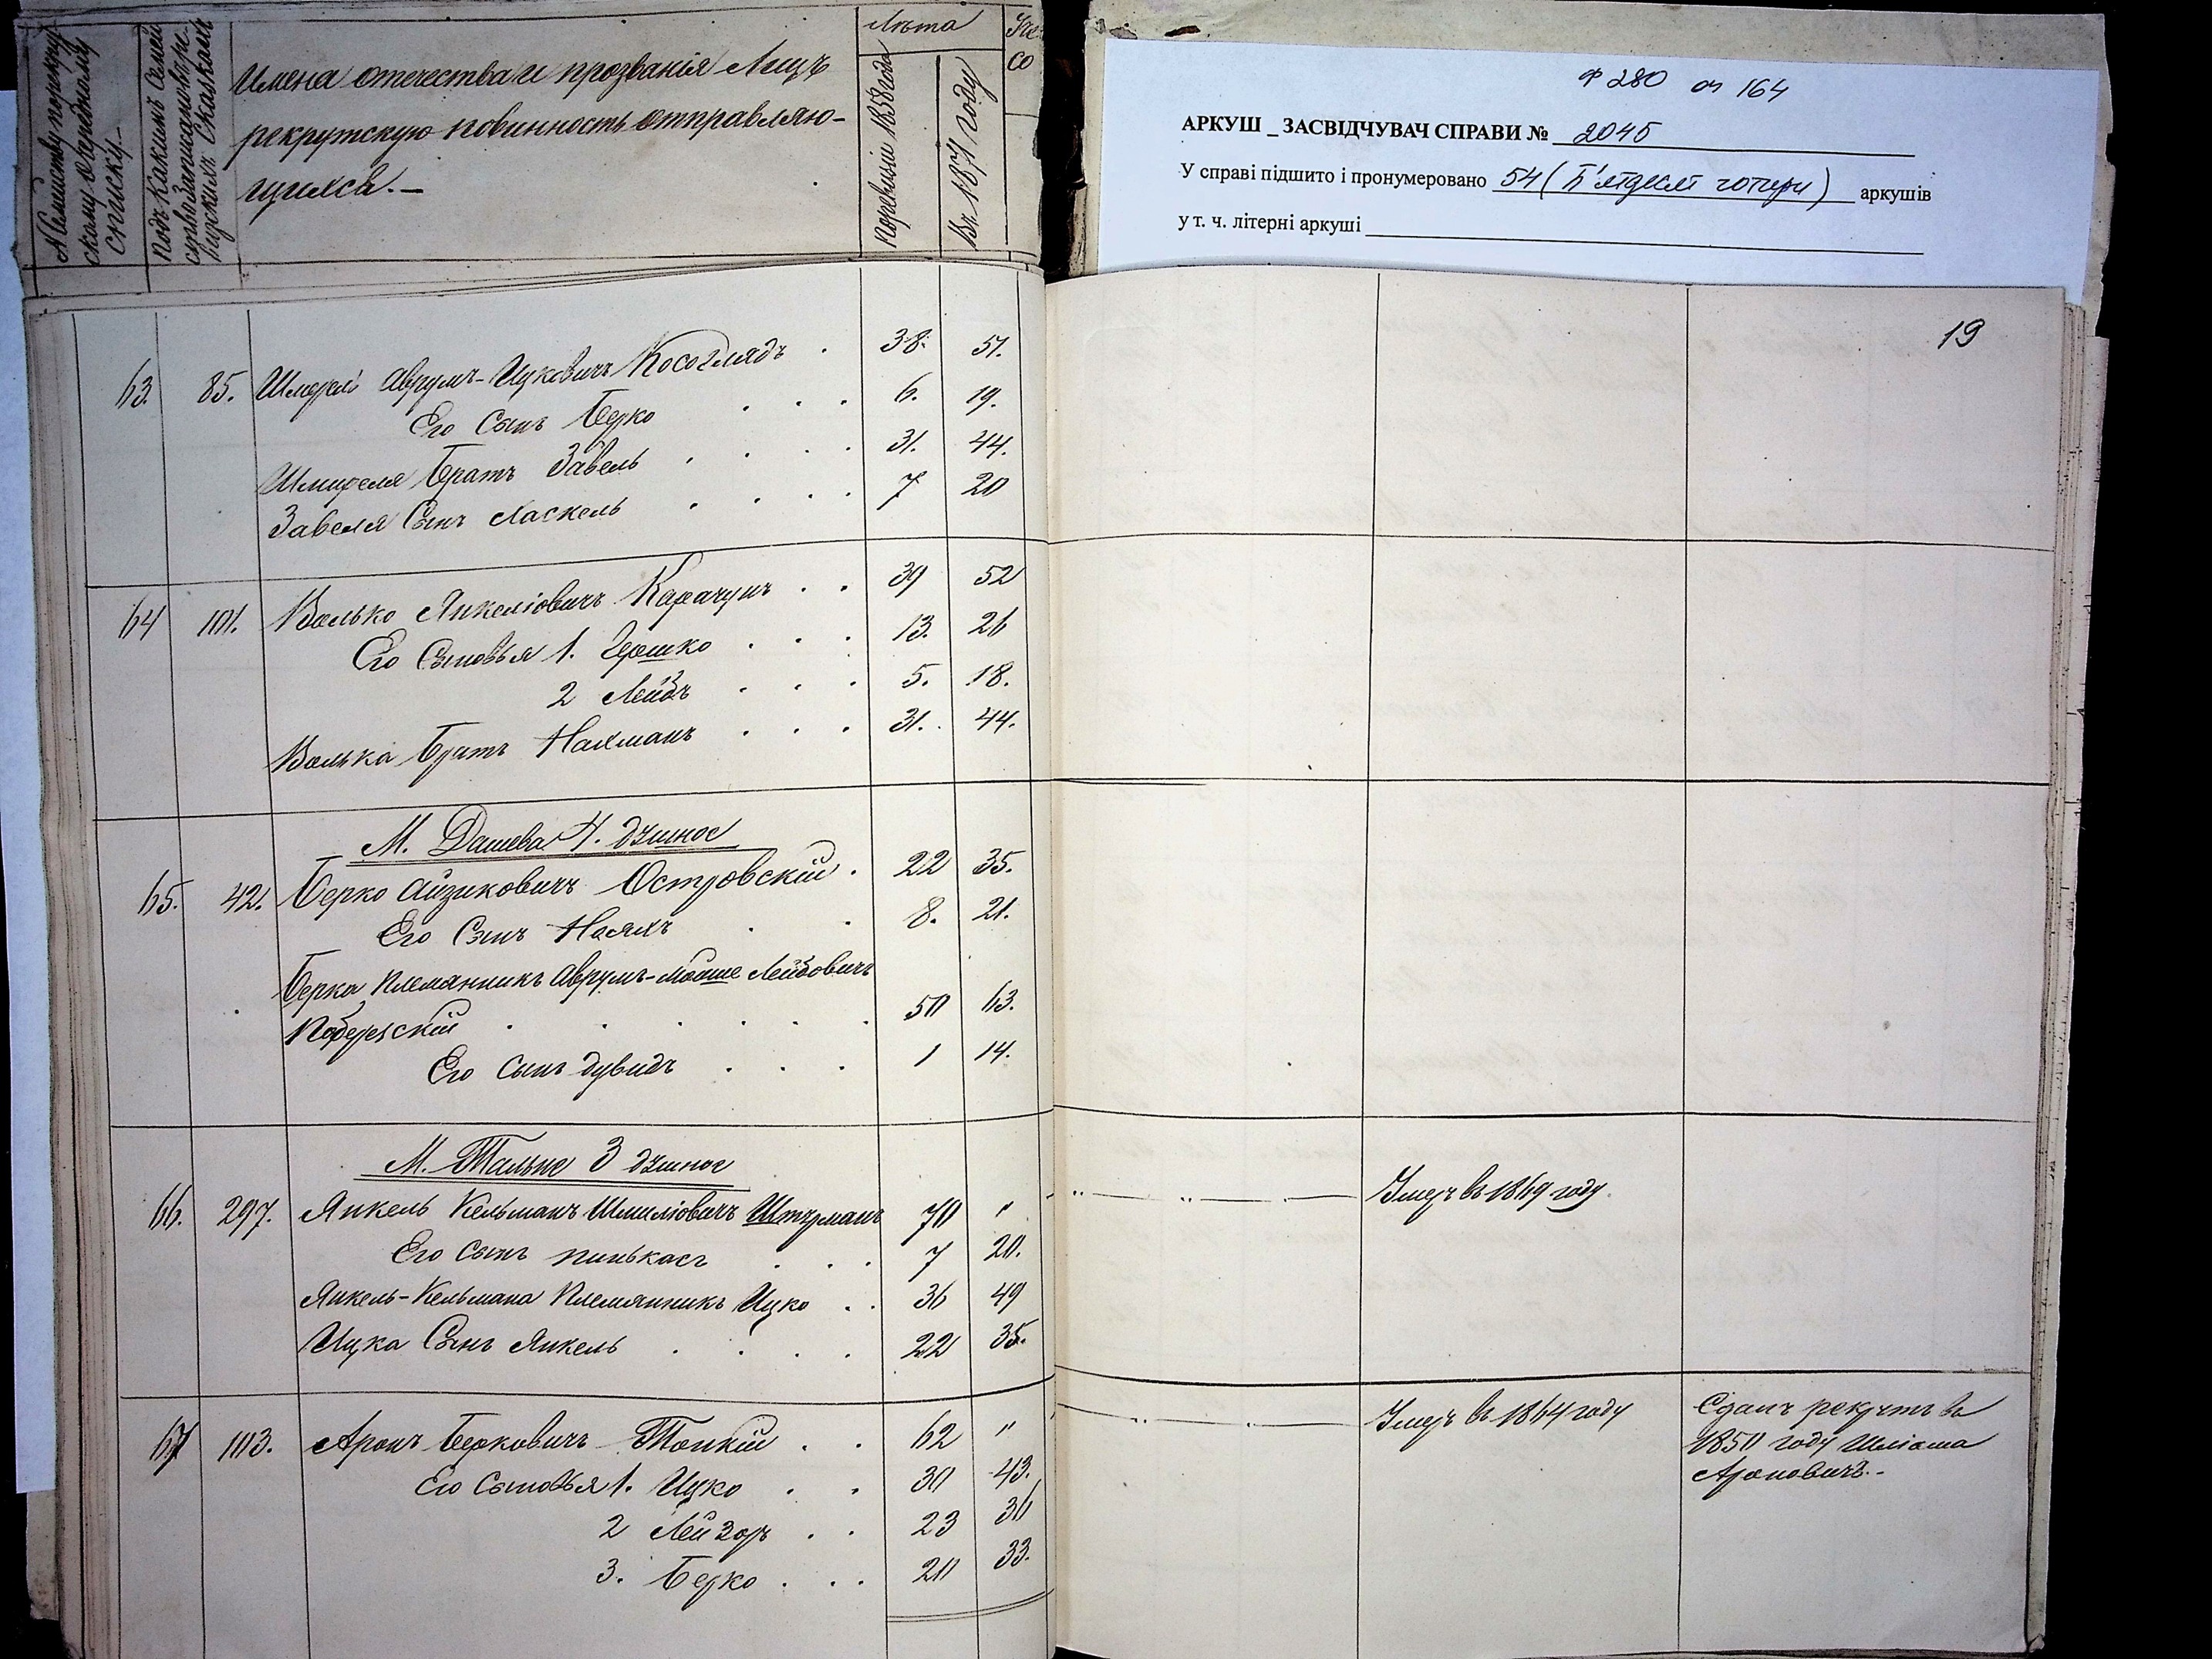 № по Семейству по рекрутскому очередному списку.
Подъ какимъ
Имена отечества и прозванія Лицъ
рекрутскую повинность отправляю-
щихся. —
Лѣта
По ревизіи 1858 года
Въ 1871 году
Ф 280 оп 164
АРКУШ _ ЗАСВІДЧУВАЧ СПРАВИ № 2045
У справі підшито і пронумеровано 54 (П'ятдесят чотири) аркушів
у т. ч. літерні аркуші
19
63. 85. Шмерель Аврумъ-Ицковичъ Косоглядъ . 38. 51.
Его Сынъ Берко . . . 6. 19.
Шмереля Братъ Завель . . . . 31. 44.
Завеля Сынъ Хаскель . . . . 7 20
64 101. Волько Янкеліовичъ Карачунъ . . 39 52
Его Сыновья 1. Гершко . . . 13. 26
2 Лейбъ . . . 5. 18.
Волька Братъ Нахманъ . . . 31. 44.
М. Дашева 4. душное
65. 42. Берко Айзиковичъ Островскій . 22 35.
Его Сынъ Ноахъ . . 8. 21.
Берка Племянникъ Аврумъ-Мойше Лейбовичъ
Побережскій . . . . . . 50 63.
Его Сынъ Дувидъ . . . 1 14.
М. Тальне 3 душное
66. 297. Янкель Кельманъ Шмиліовичъ Штурманъ 70 " Умеръ въ 1869 году.
Его Сынъ Пинькасъ . . . 7 20.
Янкель-Кельмана Племянникъ Ицко . . 36 49
Ицка Сынъ Янкель . . . . 22 35.
67 103. Аронъ Берковичъ Тонкій . . 62 " Умеръ въ 1864 году Сданъ рекрутъ въ
1850 году Шліома
Ароновичъ. -
Его Сыновья 1. Ицко . . 30 43.
2 Лейзоръ . . 23 36
3. Берко . . . 20 33.